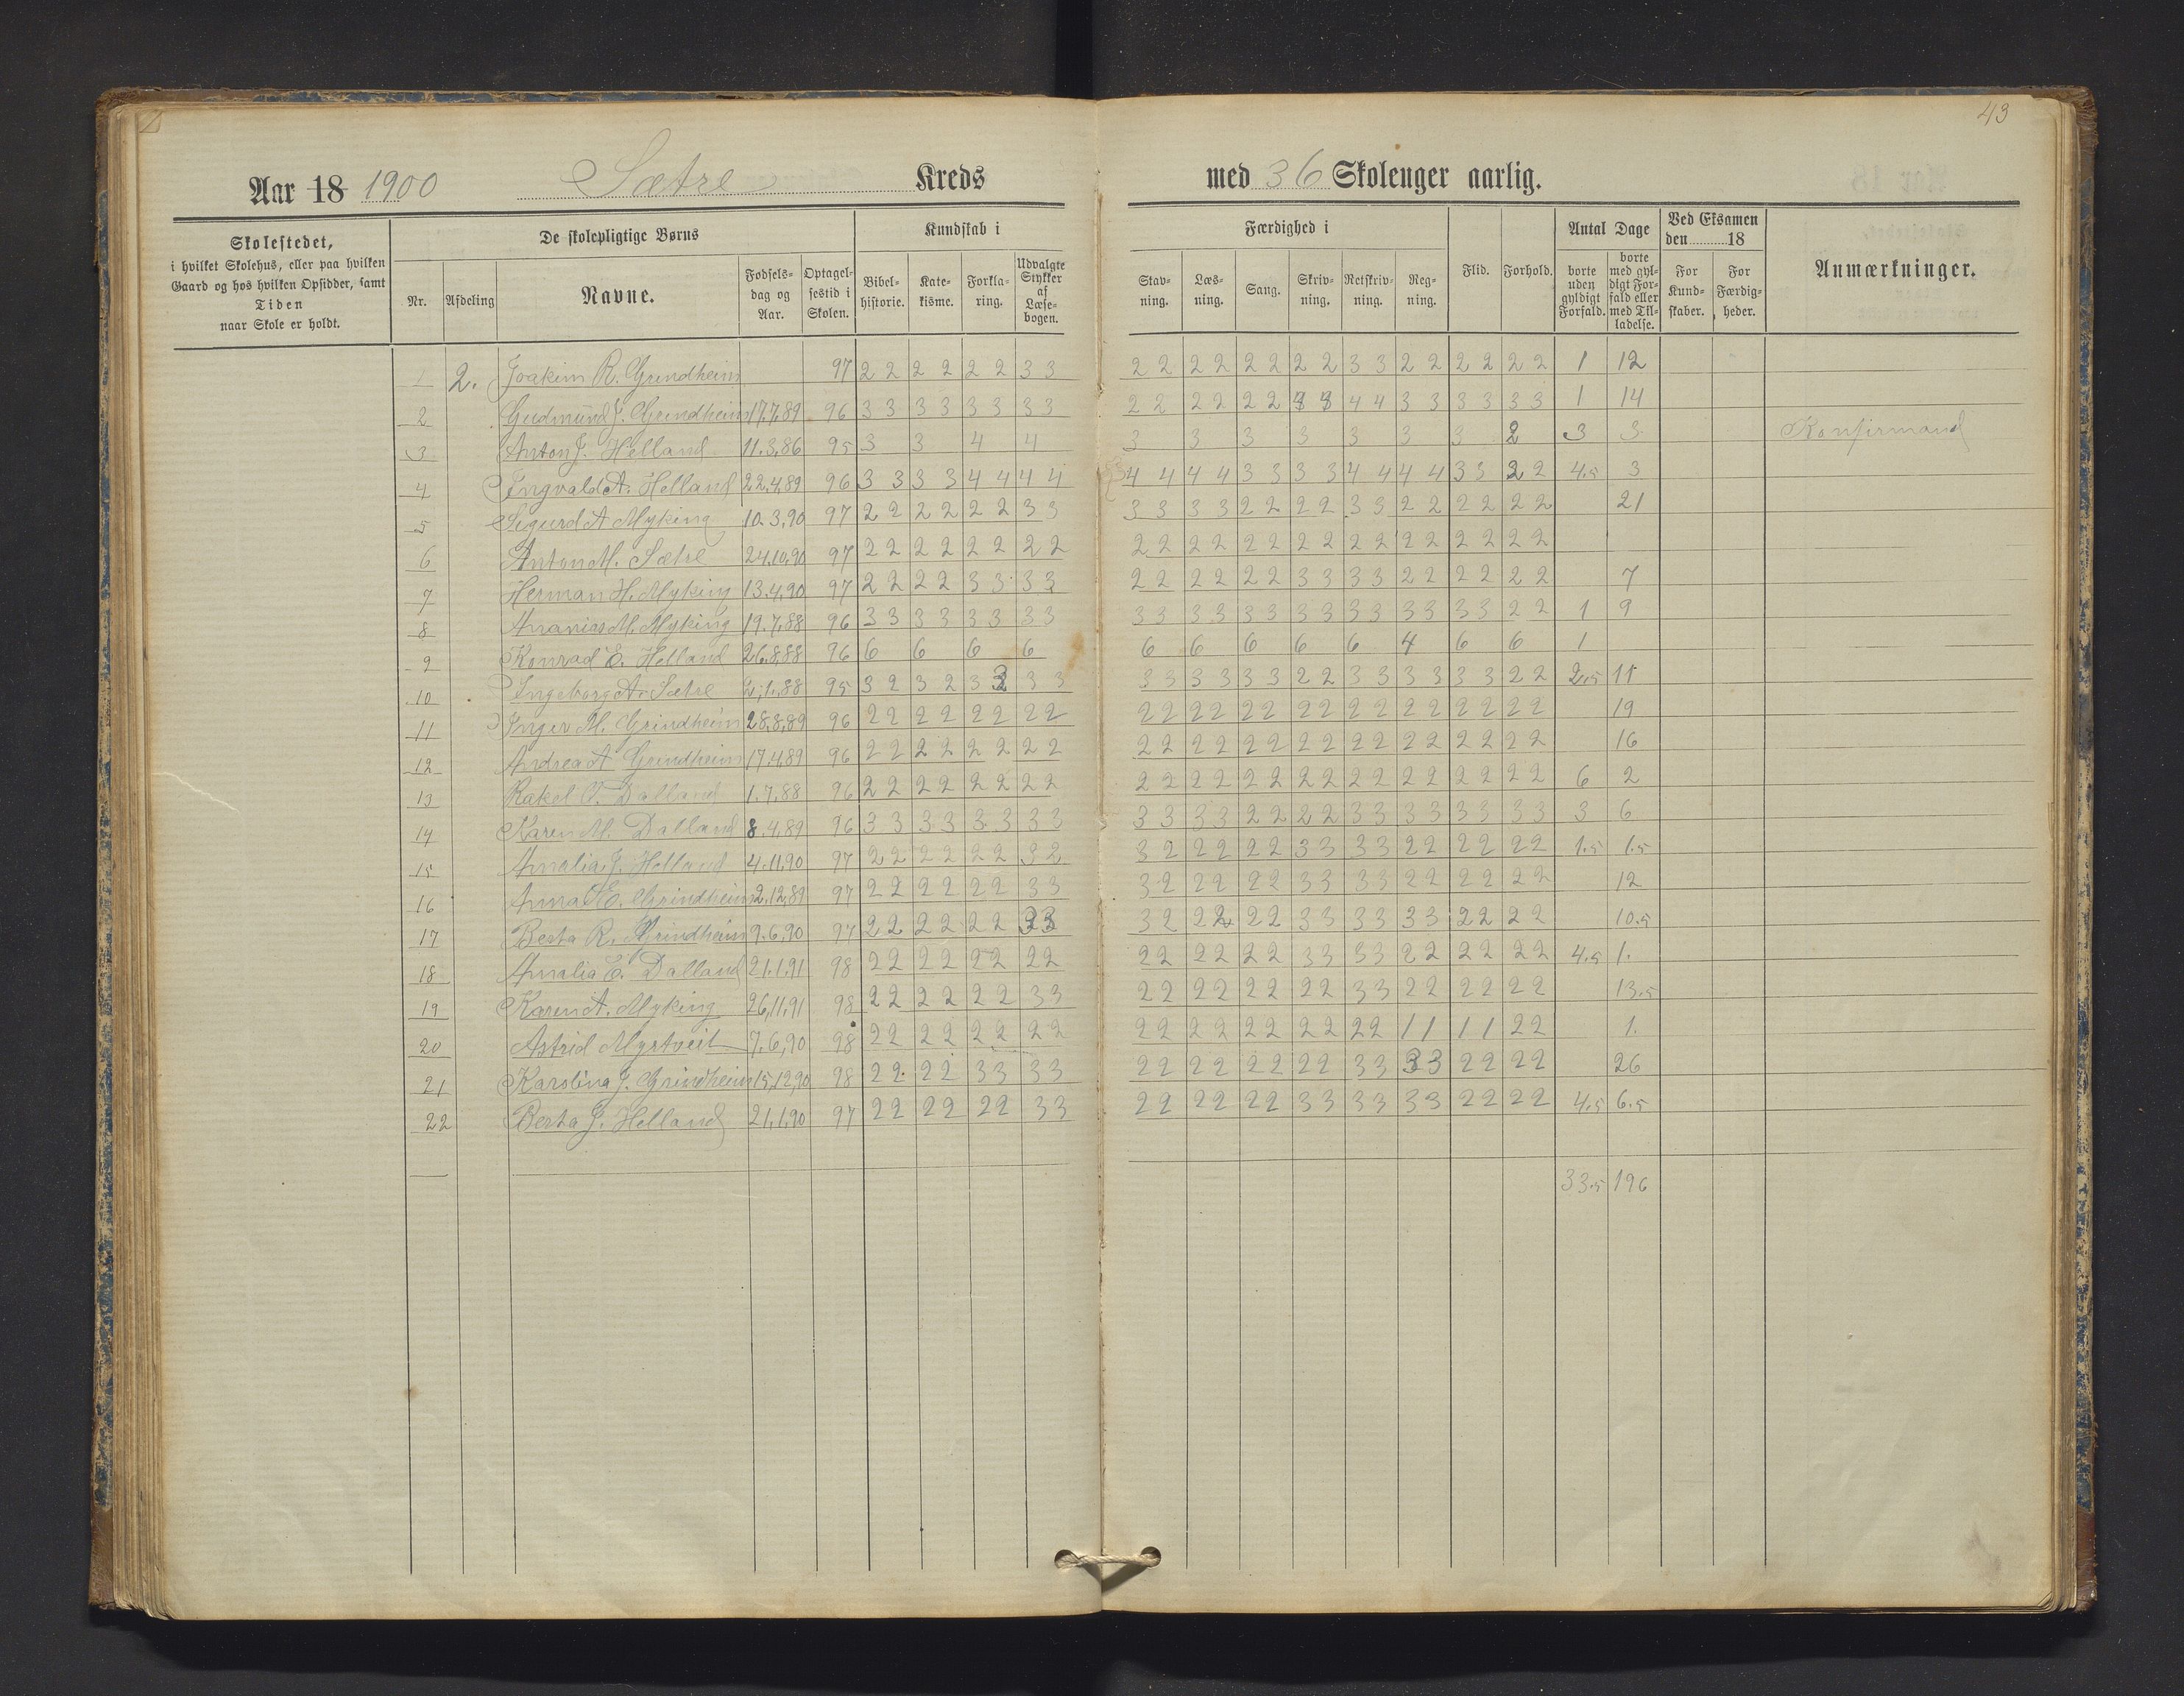 43
Aar 18 1900 Sætre Kreds med 36 Skoleuger aarlig.
Skolestedet, i hvilket Skolehus, eller paa hvilken Gaard og hos hvilken Opsidder, samt Tiden naar Skole er holdt.
De skolepligtige Børns
Nr. Afdeling Navne. Fødselsdag og Aar. Optagelsestid i Skolen.
Kundskab i
Bibelhistorie. Katekisme. Forklaring. Udvalgte Stykker af Læsebogen.
Færdighed i
Stavning. Læsning. Sang. Skrivning. Retskrivning. Regning. Flid. Forhold.
Antal Dage
borte uden gyldigt Forfald. borte med gyldigt Forfald eller med Tilladelse.
Ved Eksamen den 18
For Kundskaber. For Færdigheder.
Anmærkninger.
1 2. Joakim R. Grindheim 97 2 2 2 2 2 2 3 3 2 2 2 2 2 2 2 2 3 3 2 2 2 2 2 2 1 12
2 Gudmund J. Grindheim 17.7.89 96 3 3 3 3 3 3 3 3 2 2 2 2 2 2 3 3 4 4 3 3 3 3 3 3 1 14
3 Anton J. Helland 11.3.86 95 3 3 4 4 3 3 3 3 3 3 3 2 3 3 Konfirmand
4 Ingvald A. Helland 22.4.89 96 3 3 3 3 4 4 4 4 4 4 4 4 3 3 3 3 4 4 4 4 3 3 2 2 4.5 3
5 Sigurd A Myking 10.3.90 97 2 2 2 2 2 2 3 3 3 3 3 3 2 2 2 2 3 3 2 2 2 2 2 2 21
6 Anton M. Sætre 24.10.90 97 2 2 2 2 2 2 2 2 2 2 2 2 2 2 2 2 2 2 2 2 2 2 2 2
7 Herman H. Myking 13.4.90 97 2 2 2 2 3 3 3 3 2 2 2 2 2 2 3 3 3 3 2 2 2 2 2 2 7
8 Ananias M. Myking 19.7.88 96 3 3 3 3 3 3 3 3 3 3 3 3 3 3 3 3 3 3 3 3 3 3 2 2 1 9
9 Konrad E. Helland 26.8.88 96 6 6 6 6 6 6 6 6 6 4 6 6 1
10 Ingeborg A. Sætre 2.1.88 95 3 2 3 2 3 2 3 3 3 3 3 3 3 3 2 2 3 3 3 3 3 3 2 2 2.5 11
11 Inger M. Grindheim 28.8.89 96 2 2 2 2 2 2 2 2 2 2 2 2 2 2 2 2 2 2 2 2 2 2 2 2 19
12 Andrea A Grindheim 17.4.89 96 2 2 2 2 2 2 2 2 2 2 2 2 2 2 2 2 2 2 2 2 2 2 2 2 16
13 Rakel O. Dalland 1.7.88 96 2 2 2 2 2 2 2 2 2 2 2 2 2 2 2 2 2 2 2 2 2 2 2 2 6 2
14 Karen M. Dalland 8.4.89 96 3 3 3 3 3 3 3 3 3 3 3 3 2 2 2 2 3 3 3 3 3 3 3 3 3 6
15 Amalia J. Helland 4.11.90 97 2 2 2 2 2 2 3 2 3 2 2 2 2 2 3 3 3 3 2 2 2 2 2 2 1.5 1.5
16 Anna E. Grindheim 2.12.89 97 2 2 2 2 2 2 3 3 3 2 2 2 2 2 3 3 3 3 2 2 2 2 2 2 12
17 Berta R. Grindheim 9.6.90 97 2 2 2 2 2 2 3 3 3 2 2 2 2 2 3 3 3 3 3 3 2 2 2 2 10.5
18 Amalia E. Dalland 21.1.91 98 2 2 2 2 2 2 2 2 2 2 2 2 2 2 3 3 3 3 2 2 2 2 2 2 4.5 1.
19 Karen A. Myking 26.11.91 98 2 2 2 2 2 2 3 3 2 2 2 2 2 2 2 2 3 3 2 2 2 2 2 2 13.5
20 Astrid Myrtveit 7.6.90 98 2 2 2 2 2 2 2 2 2 2 2 2 2 2 2 2 2 2 1 1 1 1 2 2 1.
21 Karolina J. Grindheim 15.12.90 98 2 2 2 2 3 3 3 3 2 2 2 2 2 2 2 2 3 3 3 3 2 2 2 2 26
22 Berta J. Helland 21.1.90 97 2 2 2 2 2 2 3 3 2 2 2 2 2 2 3 3 3 3 3 3 2 2 2 2 4.5 6.5
33.5 196